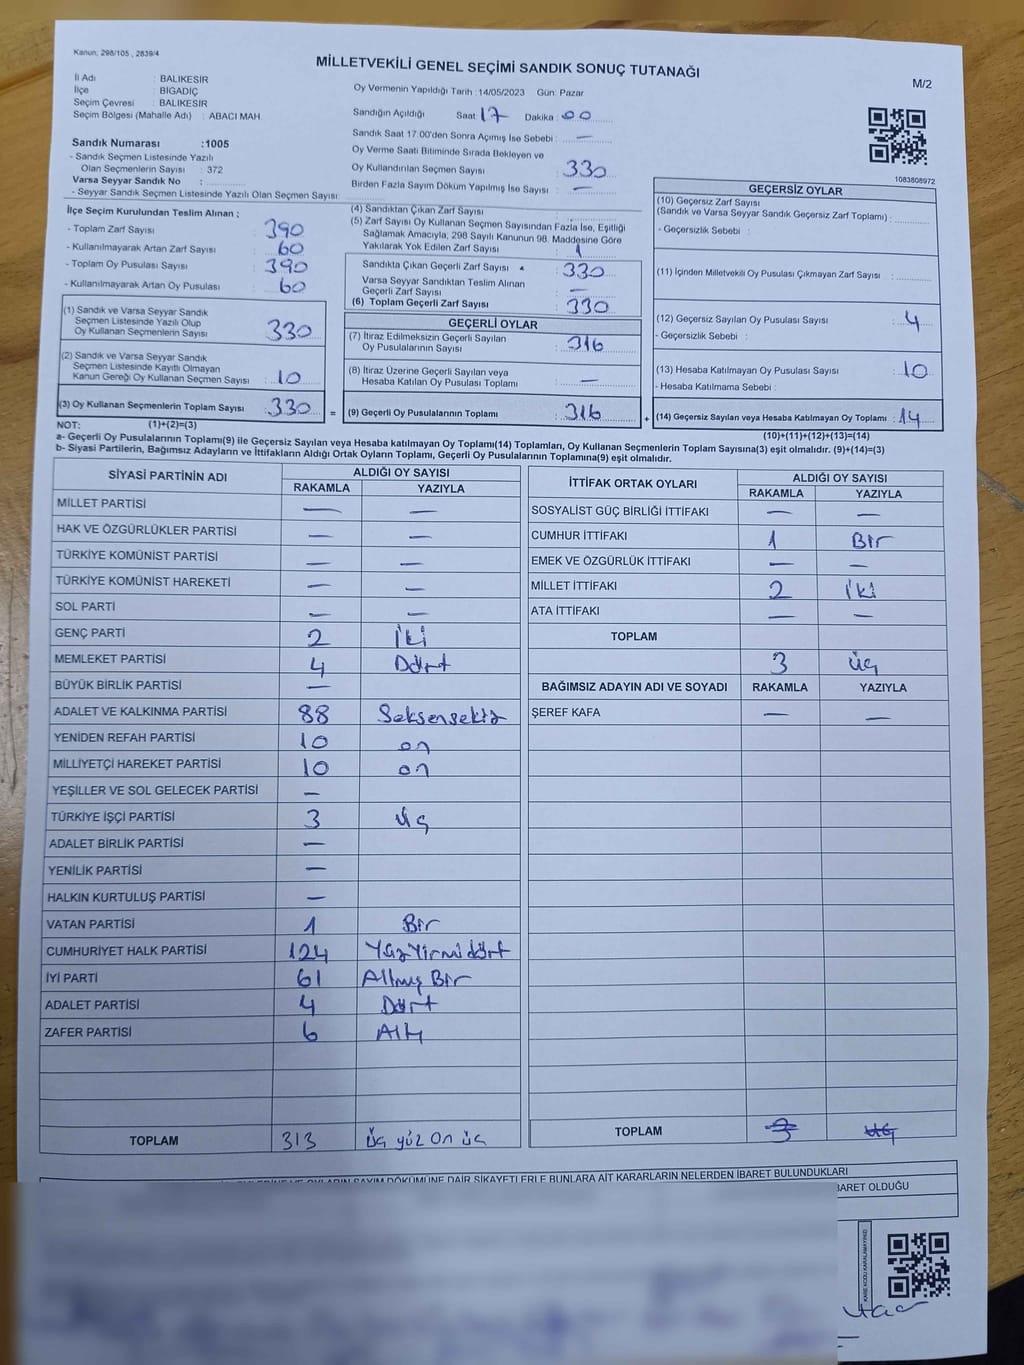 Kanun; 298/105 , 2839/4
MİLLETVEKİLİ GENEL SEÇİMİ SANDIK SONUÇ TUTANAĞI
M/2
İl Adı : BALIKESİR
İlçe : BİGADİÇ
Seçim Çevresi : BALIKESİR
Seçim Bölgesi (Mahalle Adı) : ABACI MAH.
Sandık Numarası :1005
- Sandık Seçmen Listesinde Yazılı
Olan Seçmenlerin Sayısı : 372
Varsa Seyyar Sandık No :
- Seyyar Sandık Seçmen Listesinde Yazılı Olan Seçmen Sayısı:
Oy Vermenin Yapıldığı Tarih :14/05/2023 Gün: Pazar
Sandığın Açıldığı Saat 17 Dakika : 00
Sandık Saat 17:00'den Sonra Açımış İse Sebebi : —
Oy Verme Saati Bitiminde Sırada Bekleyen ve
Oy Kullandırılan Seçmen Sayısı : 330
Birden Fazla Sayım Döküm Yapılmış İse Sayısı : —
1083808972
İlçe Seçim Kurulundan Teslim Alınan ;
- Toplam Zarf Sayısı : 390
- Kullanılmayarak Artan Zarf Sayısı : 60
- Toplam Oy Pusulası Sayısı : 390
- Kullanılmayarak Artan Oy Pusulası : 60
(1) Sandık ve Varsa Seyyar Sandık
Seçmen Listesinde Yazılı Olup
Oy Kullanan Seçmenlerin Sayısı : 330
(2) Sandık ve Varsa Seyyar Sandık
Seçmen Listesinde Kayıtlı Olmayan
Kanun Gereği Oy Kullanan Seçmen Sayısı : 10
(3) Oy Kullanan Seçmenlerin Toplam Sayısı : 330 =
(4) Sandıktan Çıkan Zarf Sayısı :
(5) Zarf Sayısı Oy Kullanan Seçmen Sayısından Fazla İse, Eşitliği
Sağlamak Amacıyla, 298 Sayılı Kanunun 98. Maddesine Göre
Yakılarak Yok Edilen Zarf Sayısı : 1
Sandıkta Çıkan Geçerli Zarf Sayısı : 330
Varsa Seyyar Sandıktan Teslim Alınan
Geçerli Zarf Sayısı : —
(6) Toplam Geçerli Zarf Sayısı : 330
GEÇERLİ OYLAR
(7) İtiraz Edilmeksizin Geçerli Sayılan
Oy Pusulalarının Sayısı : 316
(8) İtiraz Üzerine Geçerli Sayılan veya
Hesaba Katılan Oy Pusulası Toplamı : —
(9) Geçerli Oy Pusulalarının Toplamı : 316 +
GEÇERSİZ OYLAR
(10) Geçersiz Zarf Sayısı
(Sandık ve Varsa Seyyar Sandık Geçersiz Zarf Toplamı) :
- Geçersizlik Sebebi :
(11) İçinden Milletvekili Oy Pusulası Çıkmayan Zarf Sayısı :
(12) Geçersiz Sayılan Oy Pusulası Sayısı : 4
- Geçersizlik Sebebi :
(13) Hesaba Katılmayan Oy Pusulası Sayısı : 10
- Hesaba Katılmama Sebebi :
(14) Geçersiz Sayılan veya Hesaba Katılmayan Oy Toplamı : 14
NOT: (1)+(2)=(3)
(10)+(11)+(12)+(13)=(14)
a- Geçerli Oy Pusulalarının Toplamı(9) ile Geçersiz Sayılan veya Hesaba katılmayan Oy Toplamı(14) Toplamları, Oy Kullanan Seçmenlerin Toplam Sayısına(3) eşit olmalıdır. (9)+(14)=(3)
b- Siyasi Partilerin, Bağımsız Adayların ve İttifakların Aldığı Ortak Oyların Toplamı, Geçerli Oy Pusulalarının Toplamına(9) eşit olmalıdır.
SİYASİ PARTİNİN ADI ALDIĞI OY SAYISI
RAKAMLA YAZIYLA
MİLLET PARTİSİ — —
HAK VE ÖZGÜRLÜKLER PARTİSİ — —
TÜRKİYE KOMÜNİST PARTİSİ — —
TÜRKİYE KOMÜNİST HAREKETİ — —
SOL PARTİ — —
GENÇ PARTİ 2 İki
MEMLEKET PARTİSİ 4 Dört
BÜYÜK BİRLİK PARTİSİ —
ADALET VE KALKINMA PARTİSİ 88 Seksensekiz
YENİDEN REFAH PARTİSİ 10 on
MİLLİYETÇİ HAREKET PARTİSİ 10 on
YEŞİLLER VE SOL GELECEK PARTİSİ —
TÜRKİYE İŞÇİ PARTİSİ 3 üç
ADALET BİRLİK PARTİSİ —
YENİLİK PARTİSİ —
HALKIN KURTULUŞ PARTİSİ —
VATAN PARTİSİ 1 Bir
CUMHURİYET HALK PARTİSİ 124 Yüzyirmidört
İYİ PARTİ 61 Altmış Bir
ADALET PARTİSİ 4 Dört
ZAFER PARTİSİ 6 Altı
TOPLAM 313 üç yüz On üç
İTTİFAK ORTAK OYLARI ALDIĞI OY SAYISI
RAKAMLA YAZIYLA
SOSYALİST GÜÇ BİRLİĞİ İTTİFAKI — —
CUMHUR İTTİFAKI 1 Bir
EMEK VE ÖZGÜRLÜK İTTİFAKI — —
MİLLET İTTİFAKI 2 İki
ATA İTTİFAKI — —
TOPLAM
3 üç
BAĞIMSIZ ADAYIN ADI VE SOYADI RAKAMLA YAZIYLA
ŞEREF KAFA — —
TOPLAM 3 üç
SAYIM DÖKÜMÜNE DAİR ŞİKAYETLERLE BUNLARA AİT KARARLARIN NELERDEN İBARET BULUNDUKLARI
BARET OLDUĞU